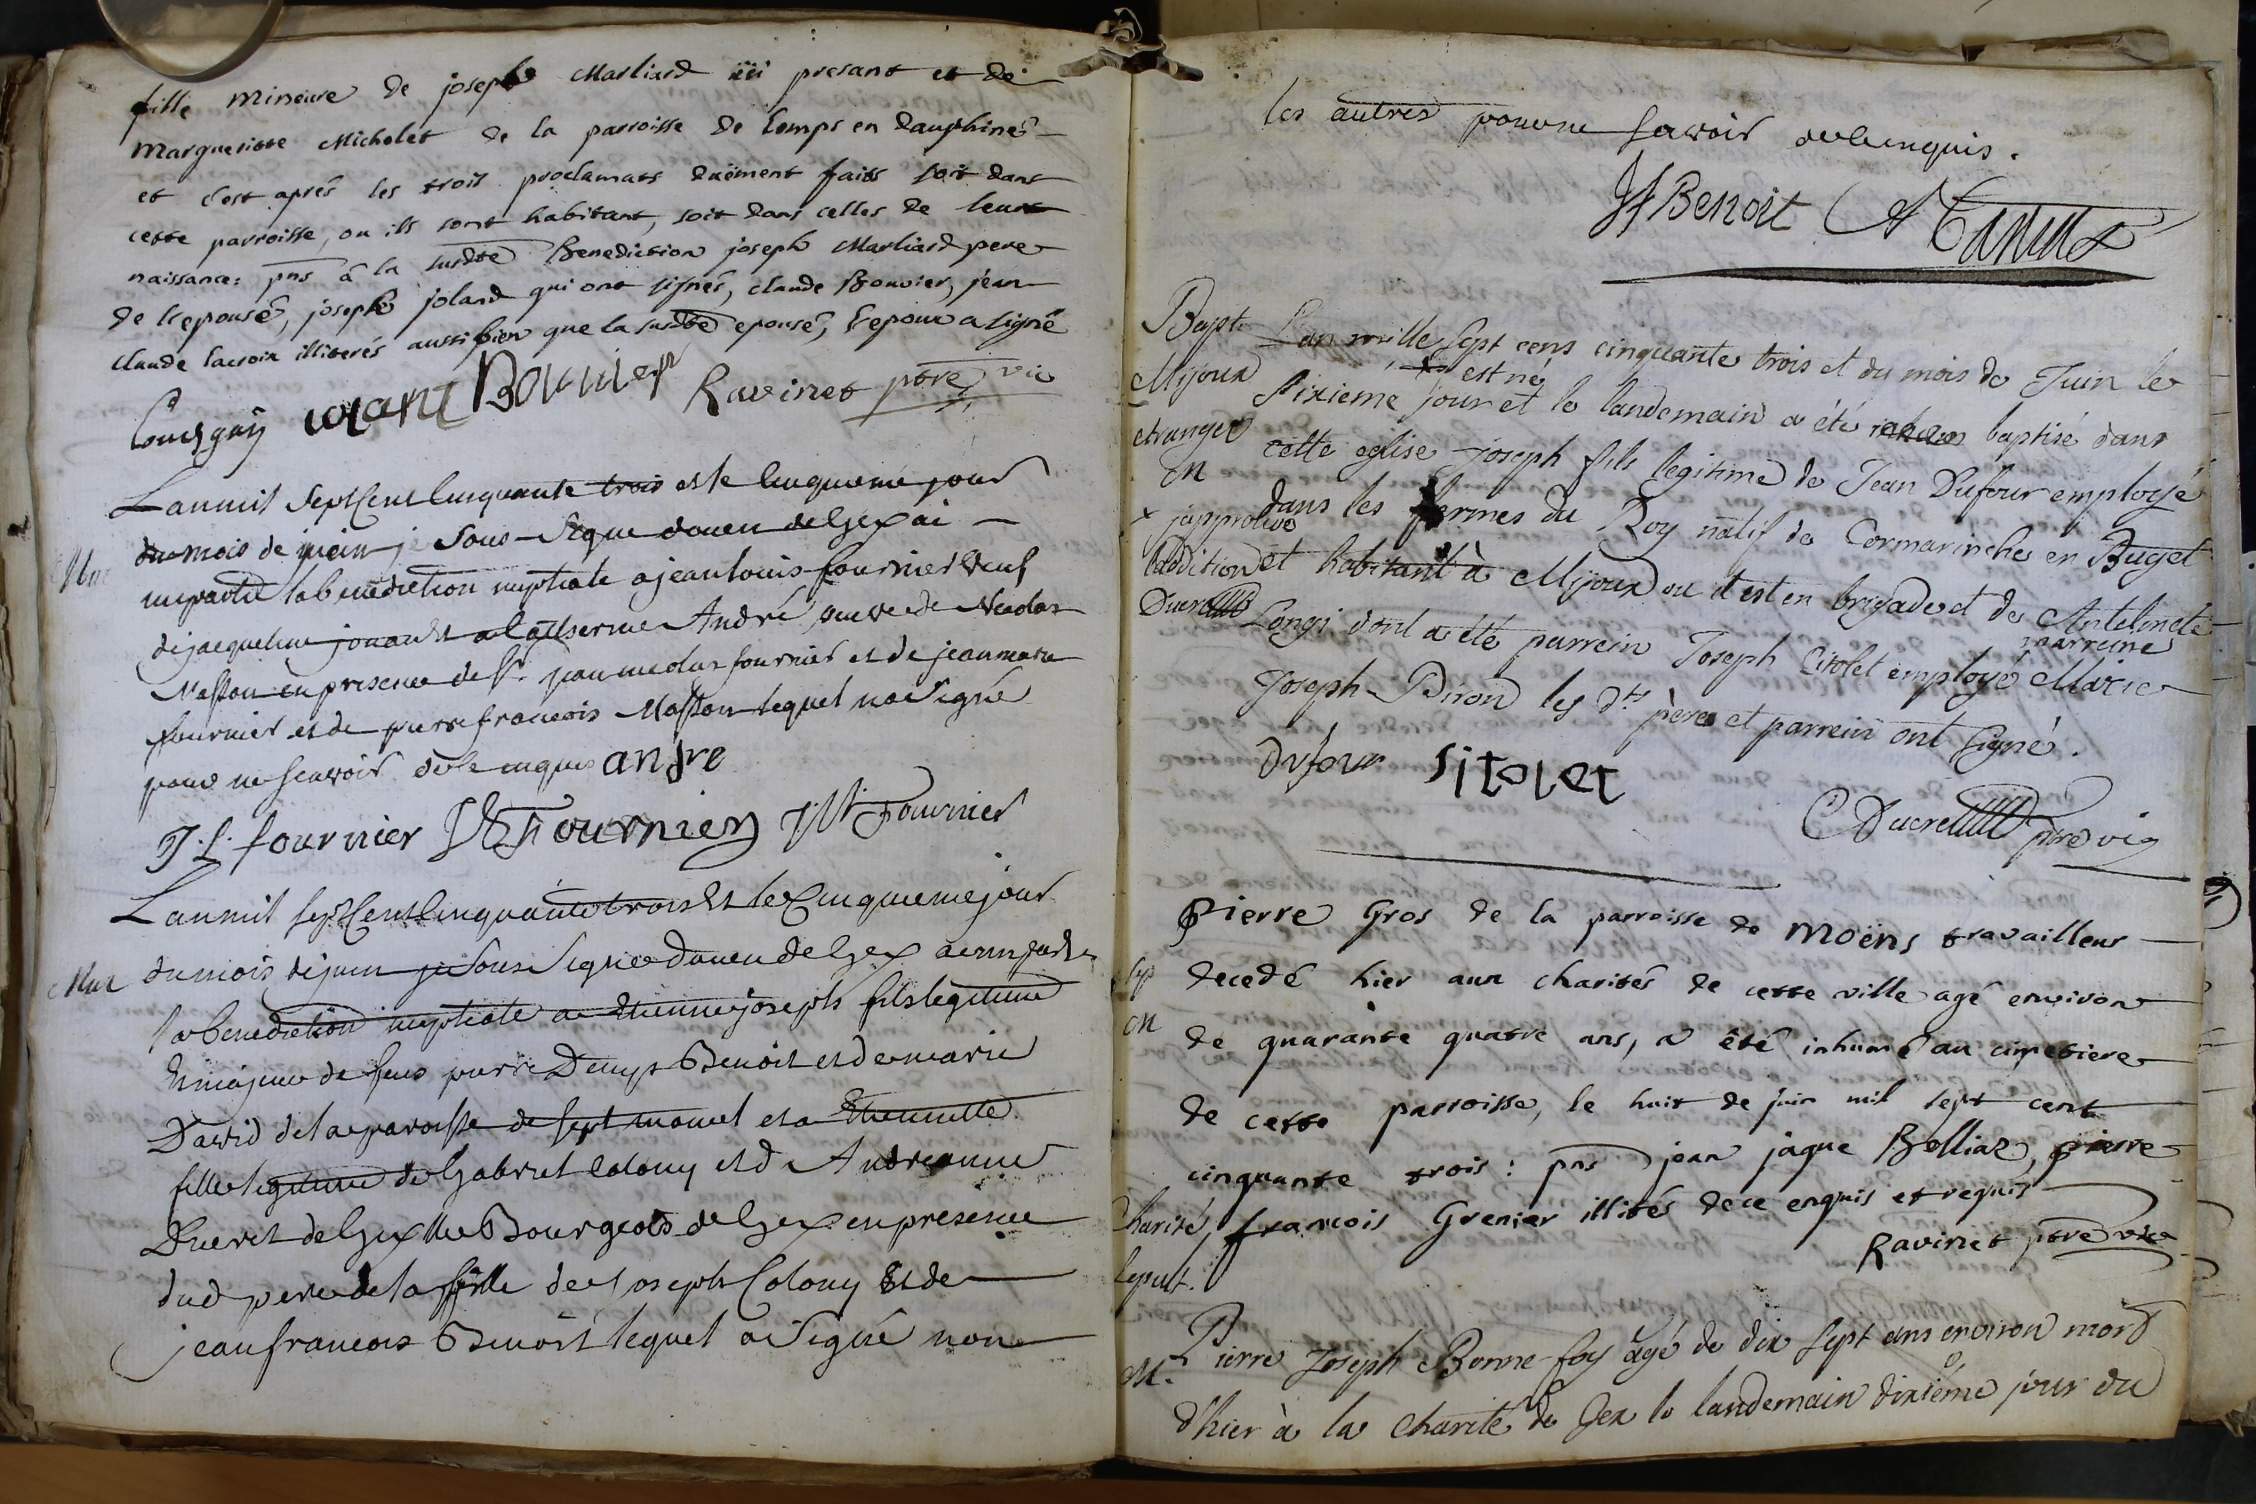 fille mineure de joseph Marliard ici presant et de
Margueritte Micholet de la parroisse de Lomps en dauphiné
et c'est aprés les trois proclamats duëment faits soit dans
cette parroisse, ou ils sont habitant, soit dans celles de leurs
naissance: pns â la susdte Benediction joseph Marliard pere
de l'epousé, joseph joland qui ont signés, claude Bouvier, jean
claude lacroix illiterés aussi bien que la susdte epousé, l'epoux a signé
Bouvier Ravinet ptre vic
Mar
L'an mil sept Cent Cinquante trois et le Cinquieme jour
du mois de juin je Sous-Signe doien de Gex ai
imparti la benediction nuptiale a jean louis fournier veuf
de jacqueline jouan et a Guillermine André veuve de Nicolas
Masson en presence de Sr. jean nicolas fournier et de jean marie
fournier et de pierre francois Masson lequel n'a Signé
pour ne scavoir de ce enquis andre
J. L. fournier Fournier JM Fournier
Mar
L'an mil sept Cent Cinquante trois et le Cinquieme jour
du mois de juin je Sous Signé Doien de Gex ai imparti
la benediction nuptiale a Etienne joseph fils legitime
et majeur de feus pierre Denys Benoit et de marie
David de la paroisse de Septmoncel et a Etiennette
fille legitime de Gabriel Colomy et d'Andreanne
Ducret de Gex Me Bourgeois de Gex en presence
dud pere de la fille de joseph Colomy Et de
jean francois Benoit lequel a Signé non
les autres pour ne scavoir de ce enquis.
JF Benoit
Bapt.
Mijoux
etranger
on
x japprouve
laddition
Ducret
L'an mille sept cens cinquante trois et du mois de Juin le
sixieme jour x est né et le landemain a été baptisé dans
cette eglise Joseph fils legitime de Jean Dufour employé
dans les fermes du Roy natif de Cormarinche en Buget
et habitant à Mijoux ou il est en brigade et de Antelmete
Longi dont a été parrein Joseph Citolet employé marreine Marie
Joseph Piron les dts père et parrein ont signé.
Dufour Sitolet
Ducret ptre vic
sep
on
Pierre Gros de la parroisse de Moëns travailleur
decedé hier aux charités de cette ville agé environ
de quarante quatre ans, a êté inhumé au cimetiere
de cette parroisse, le huit de juin mil sept cent
cinquante trois: pns jean jaque Belliaz, pierre
francois Grenier illités de ce enquis et requis
Ravinet ptre vic
Charité
sepult.
M.
Pierre Joseph Bonne-foy âgé de dix sept ans environ mort
d'hier à la Charité de Gex le landemain dixième jour du